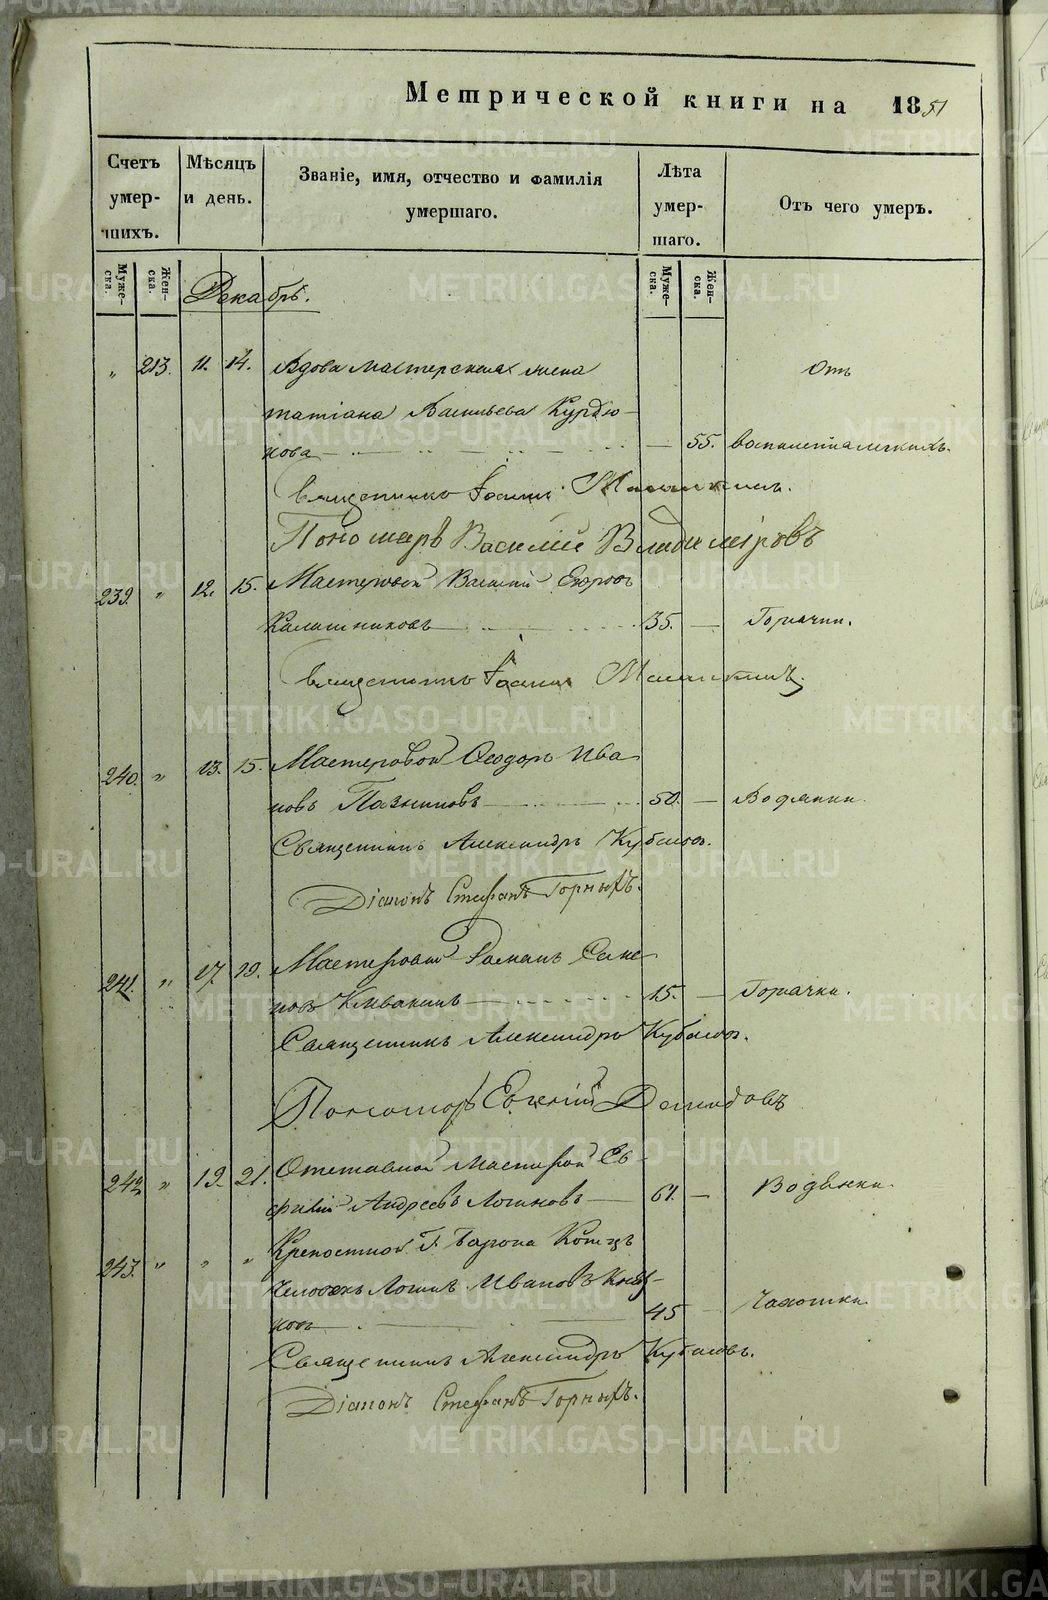 Метрической книги на 1851
Счетъ умершихъ.
Мѣсяцъ и день.
Званіе, имя, отчество и фамилія умершаго.
Лѣта умершаго.
Отъ чего умеръ.
Мужеска.
Женска.
Мужеска.
Женска.
Декабрь.
„ 213. 11. 14. Вдова мастерская жена Отъ
татіана Васильева Курдю-
кова 55. воспаленія легкихъ.
Священникъ Іоаннъ
Пономарь Василій Владиміровъ
239. „ 12. 15. Мастеровой Василій Егоровъ
Калашниковъ 35. Горячки.
Священникъ Іоаннъ
240. „ 13. 15. Мастеровой Ѳеодоръ Ива-
новъ 50. Водянки.
Священникъ Александръ Кубасовъ.
Діаконъ Стефанъ Горныхъ.
241. „ 17. 19. Мастеровой Романъ
15. Горячки.
Священникъ Александръ Кубасовъ.
Пономарь Евгеній Демидовъ
242. „ 19. 21. Отставной мастеровой Ев-
фимій Андреевъ Логиновъ 61. Водянки.
243. „ „ „ Крепостной Г.
человекъ Логинъ Ивановъ
новъ 45 Чахотки
Священникъ Александръ Кубасовъ.
Діаконъ Стефанъ Горныхъ.
METRIKI.GASO-URAL.RU